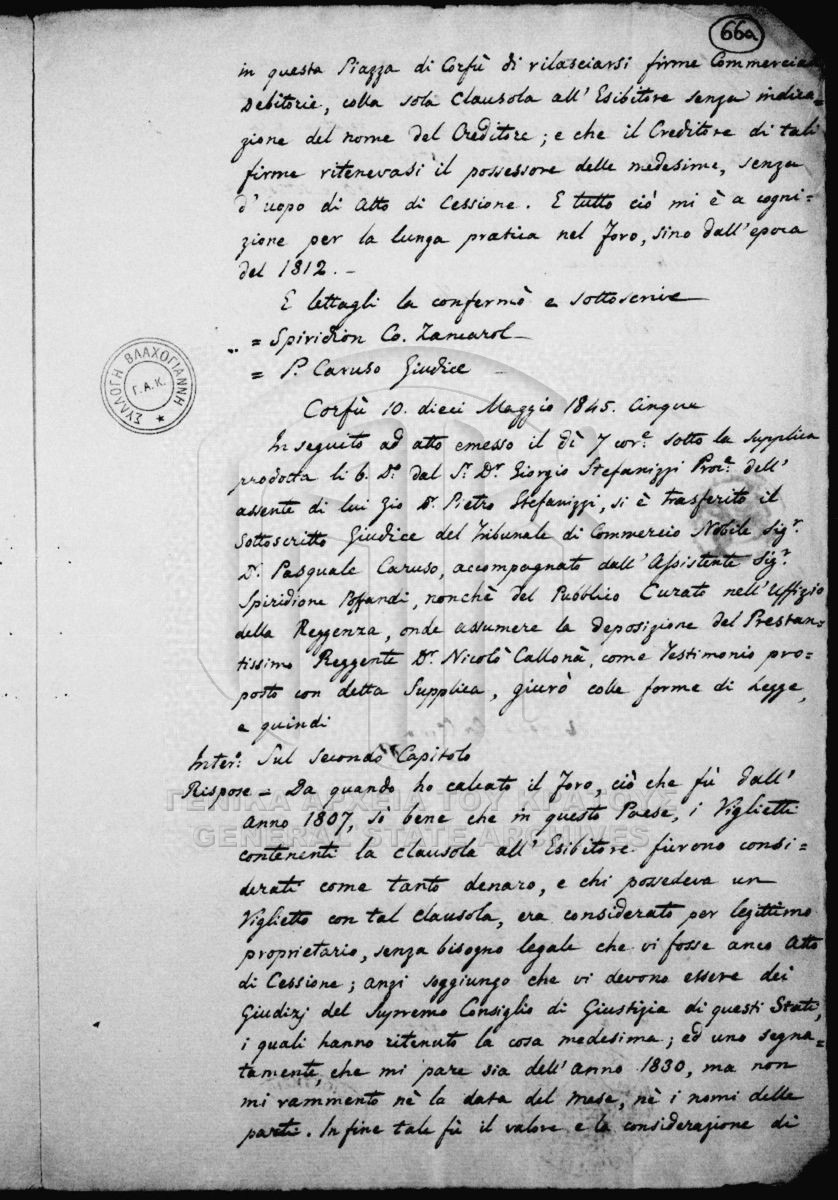 66a
in questa Piazza di Corfù di rilasciarsi firme Commerciali
Debitorie, colla sola clausola all'Esibitore senza indica=
zione del nome del Creditore; e che il Creditore di tali
firme ritenevasi il possessore delle medesime, senza
d'uopo di Atto di Cessione. E tutto ciò mi è a cogni=
zione per la lunga pratica nel Foro, sino dall'epoca
del 1812. –
E lettagli la confermò e sottoscrive
= Spiridion Co.
= P. Caruso Giudice
Corfù 10. dieci Maggio 1845. Cinque
In seguito ad atto emesso il dì 7 corr.e sotto la supplica
prodotta li 6. D.o dal S.r D.r Giorgio Stefanizzi Proc.e dell'
assente di lui Zio D.r Pietro Stefanizzi, si è trasferito il
Sottoscritto Giudice del Tribunale di Commercio Nobile Sig.r
D.r Pasquale Caruso, accompagnato dall'Assistente Sig.r
Spiridione, nonchè del Pubblico Curato nell'Uffizio
della Reggenza, onde assumere la deposizione del Prestan=
tissimo Reggente D.r Nicolò Callonà, come Testimonio pro=
posto con detta Supplica, giurò colle forme di Legge,
e quindi
Inter.o Sul secondo Capitolo
Rispose – Da quando ho calcato il Foro, ciò che fù dall'
anno 1807, sò bene che in questo Paese, i Viglietti
contenenti la clausola all'Esibitore furono consi=
derati come tanto denaro, e chi possedeva un
Viglietto con tal clausola, era considerato per legittimo
proprietario, senza bisogno legale che vi fosse anco Atto
di Cessione; anzi soggiungo che vi devono essere dei
Giudizj del Supremo Consiglio di Giustizia di questi Stati,
i quali hanno ritenuto la cosa medesima; ed uno segna=
tamente, che mi pare sia dell'anno 1830, ma non
mi rammento nè la data del mese, nè i nomi delle
parti. In fine tale fù il valore e la considerazione di
ΣΥΛΛΟΓΗ ΒΛΑΧΟΓΙΑΝΝΗ
Γ.Α.Κ.
ΓΕΝΙΚΑ ΑΡΧΕΙΑ ΤΟΥ ΚΡΑΤΟΥΣ
GENERAL STATE ARCHIVES